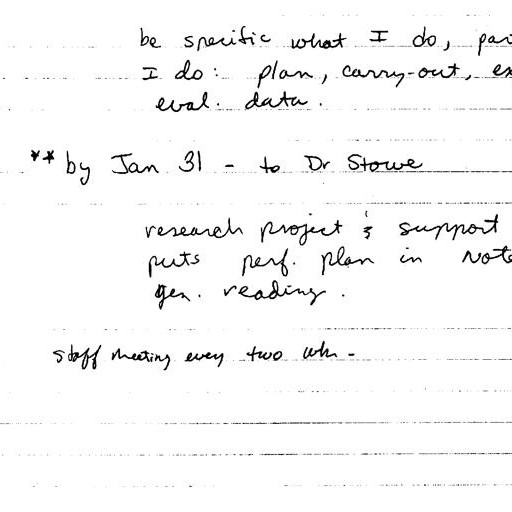 be specific what I do, par
I do: plan, carry-out, ex
eval. data.
** by Jan 31 - to Dr Stowe
research project & support
puts perf. plan in note
gen. reading.
staff meeting every two wk -